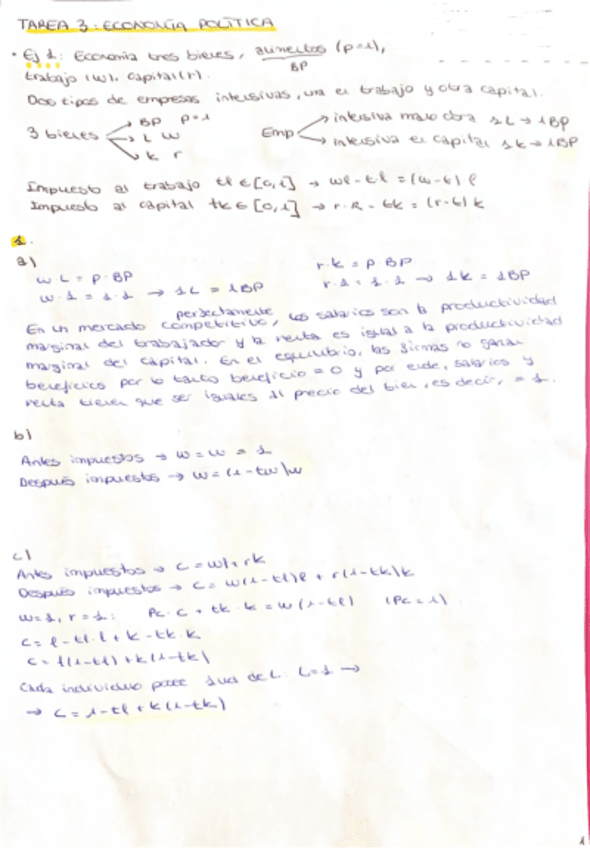 TAREA 3: ECONOMÍA POLÍTICA
• Ej 1: Economía tres bienes, alimentos (p=1),
BP
trabajo (w), capital (r).
Dos tipos de empresas intensivas, una en trabajo y otra capital.
3 bienes → BP p=1
→ L w
→ k r
Emp → intensiva mano obra 1L → 1BP
→ intensiva en capital 1k → 1BP
Impuesto al trabajo tl ∈ [0,1] → wl - tl = (w-t) l
Impuesto al capital tk ∈ [0,1] → r·k - tk = (r-t) k
1.
a)
w L = p · BP
w · 1 = 1 · 1 → 1L = 1BP
r · k = p · BP
r · 1 = 1 · 1 → 1k = 1BP
En un mercado perfectamente competitivo, los salarios son la productividad
marginal del trabajador y la renta es igual a la productividad
marginal del capital. En el equilibrio, las firmas no ganan
beneficios por lo tanto beneficio = 0 y por ende, salarios y
renta tienen que ser iguales al precio del bien, es decir, = 1.
b)
Antes impuestos → w = w = 1
Después impuestos → w = (1 - tw)w
c)
Antes impuestos → c = wl + rk
Después impuestos → c = w(1-tl)l + r(1-tk)k
w=1, r=1: Pc · c + tk · k = w(1-tl) (Pc = 1)
c = l - tl · l + k - tk · k
c = l(1-tl) + k(1-tk)
Cada individuo posee 1ud de L. L=1 →
→ c = 1 - tl + k(1-tk)
1